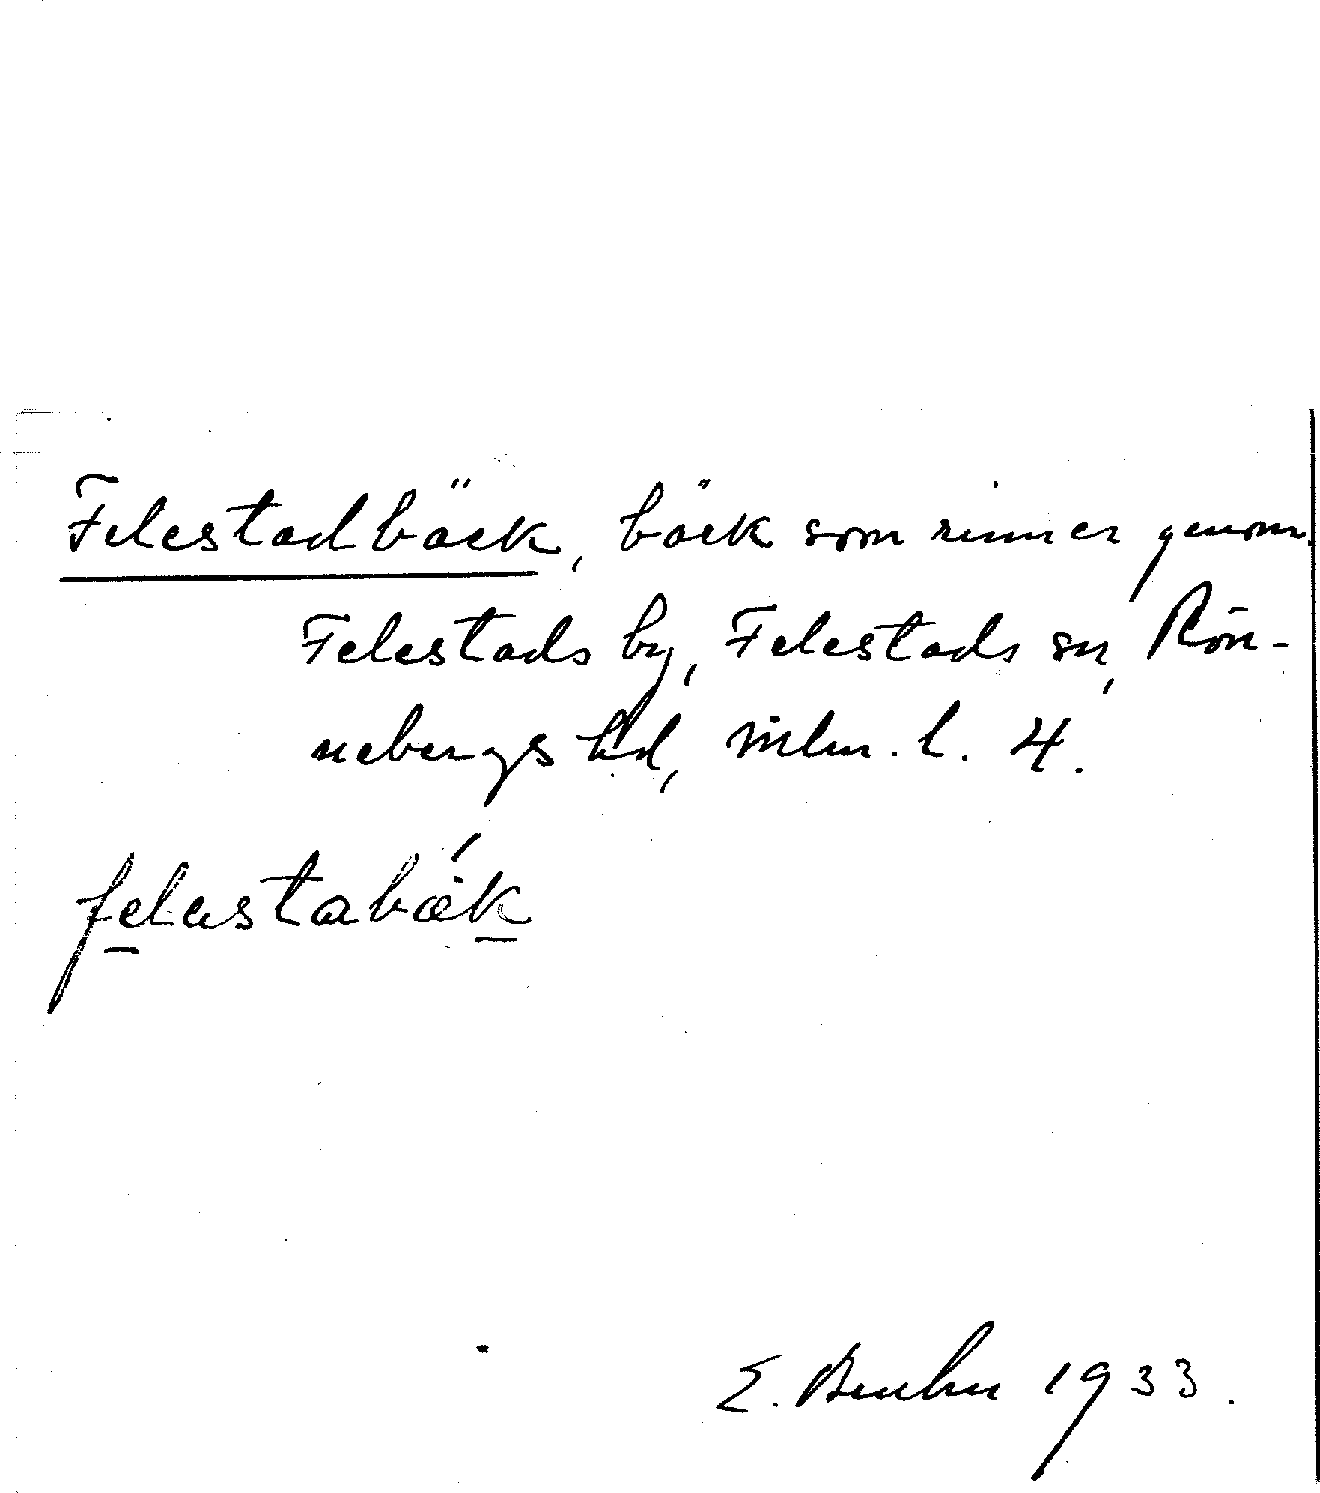 Felestadbäck, bäck som rinner genom
Felestads by, Felestads sn, Rön-
nebergs hd, Mlm. l. 4.
felastabǽk
E. Bruhn 1933.